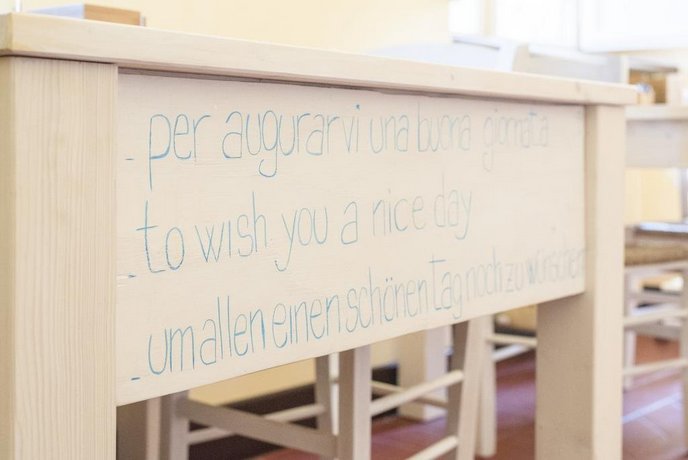 - per augurarvi una buona giornata
- to wish you a nice day
- um allen einen schönen tag noch zu wünschen